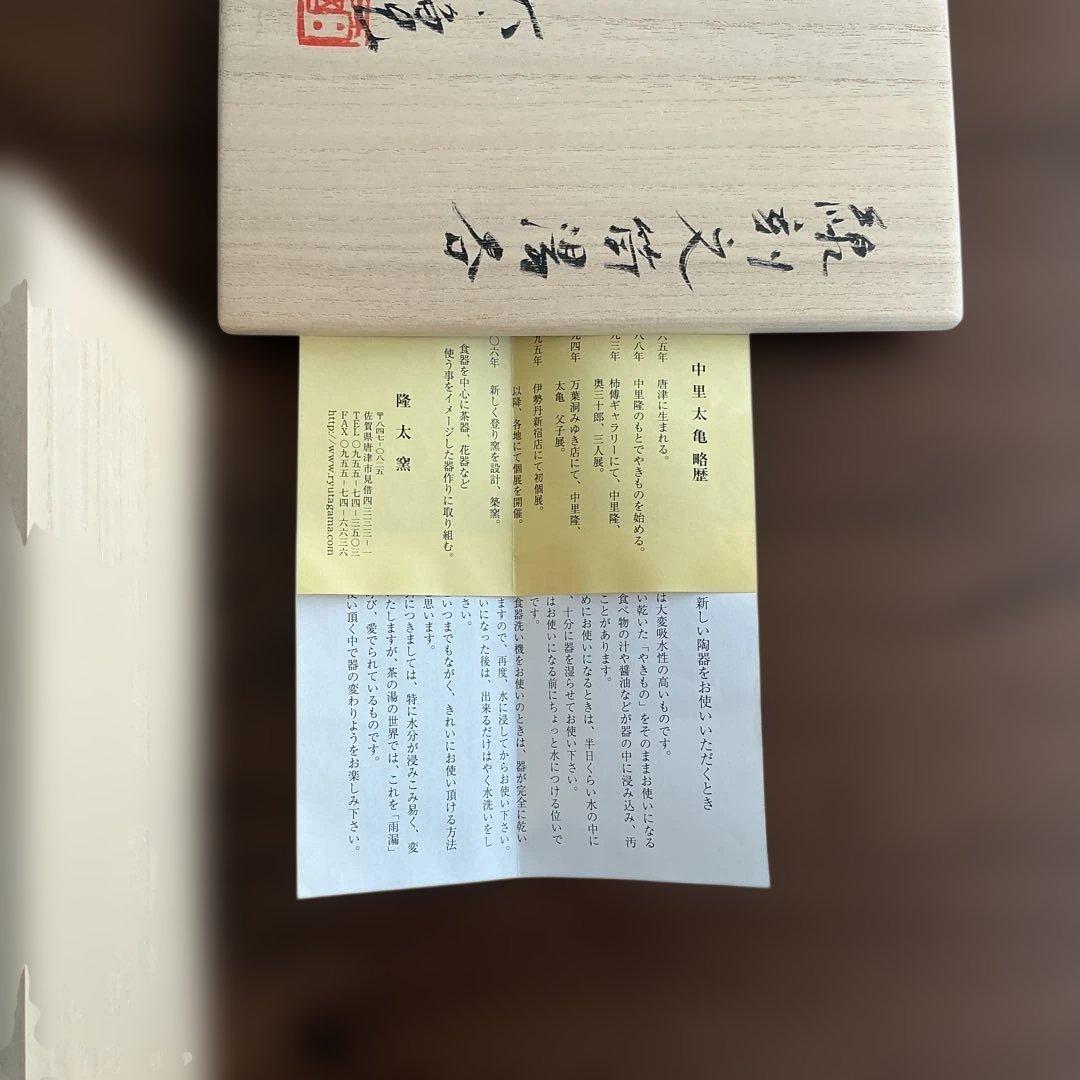 線刻文筒湯呑
太亀
中里太亀略歴
六五年 唐津に生まれる。
八八年 中里隆のもとでやきものを始める。
九三年 柿傳ギャラリーにて、中里隆、
奥三十郎、三人展。
九四年 万葉洞みゆき店にて、中里隆、
太亀 父子展。
九五年 伊勢丹新宿店にて初個展。
以降、各地にて個展を開催。
〇六年 新しく登り窯を設計、築窯。
食器を中心に茶器、花器など
使う事をイメージした器作りに取り組む。
隆太窯
〒八四七-〇八二五
佐賀県唐津市見借四三三三-一
TEL〇九五五-七四-三五〇三
FAX〇九五五-七四-六六三六
http://www.ryutagama.com
新しい陶器をお使いいただくとき
は大変吸水性の高いものです。
い乾いた「やきもの」をそのままお使いになる
食べ物の汁や醤油などが器の中に浸み込み、汚
ことがあります。
めにお使いになるときは、半日くらい水の中に
、十分に器を湿らせてお使い下さい。
はお使いになる前にちょっと水につける位いで
です。
食器洗い機をお使いのときは、器が完全に乾い
ますので、再度、水に浸してからお使い下さい。
いになった後は、出来るだけはやく水洗いをし
さい。
いつまでもながく、きれいにお使い頂ける方法
思います。
につきましては、特に水分が浸みこみ易く、変
たしますが、茶の湯の世界では、これを「雨漏」
び、愛でられているものです。
使い頂く中で器の変わりようをお楽しみ下さい。